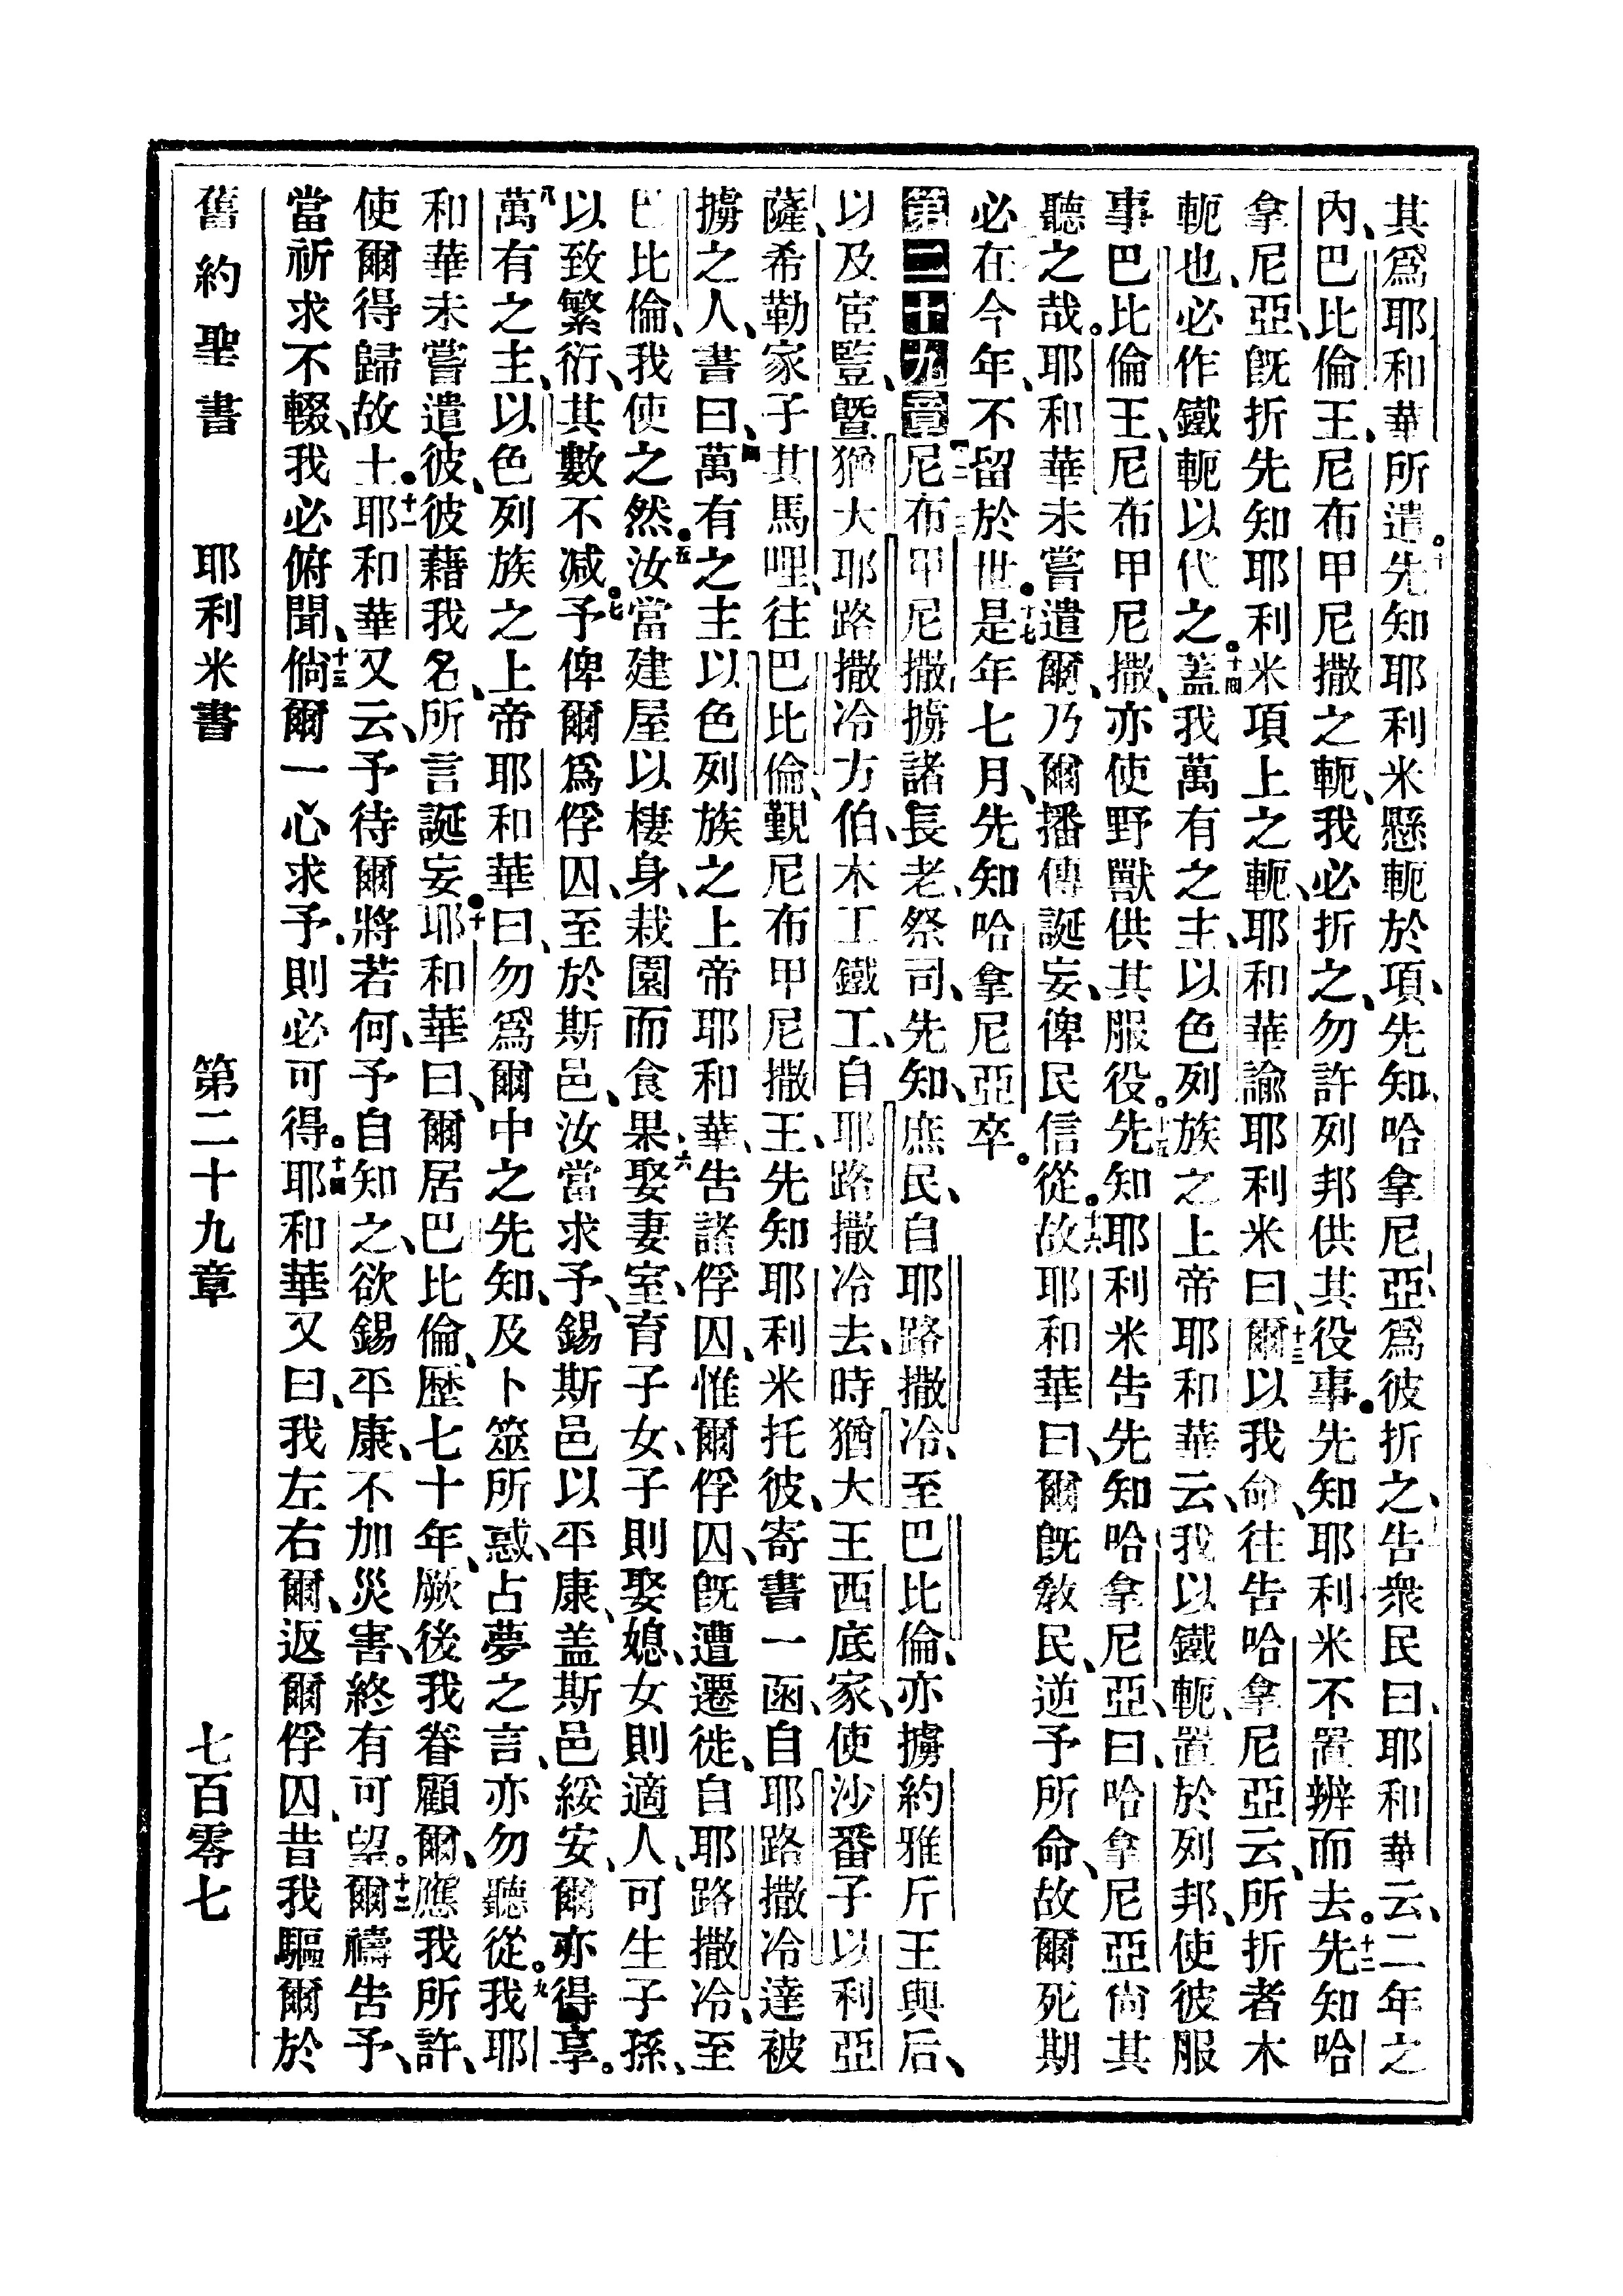 其爲耶和華所遣。十先知耶利米懸軛於項、先知哈拿尼亞爲彼折之、十一告衆民曰、耶和華云、二年之
內、巴比倫王、尼布甲尼撒之軛、我必折之、勿許列邦供其役事。先知耶利米不置辨而去。十二先知哈
拿尼亞、旣折先知耶利米項上之軛、耶和華諭耶利米曰、十三爾以我命、往告哈拿尼亞云、所折者木
軛也、必作鐵軛以代之。十四蓋我萬有之主、以色列族之上帝耶和華云、我以鐵軛、置於列邦、使彼服
事巴比倫王、尼布甲尼撒、亦使野獸供其服役。十五先知耶利米告先知哈拿尼亞、曰、哈拿尼亞尙其
聽之哉。耶和華未嘗遣爾、乃爾播傳誕妄、俾民信從。十六故耶和華曰、爾旣敎民、逆予所命、故爾死期
必在今年、不留於世。十七是年七月、先知哈拿尼亞卒。
第二十九章一二三尼布甲尼撒擄諸長老、祭司、先知、庶民、自耶路撒冷、至巴比倫、亦擄約雅斤王與后、
以及宦豎、曁猶大耶路撒冷方伯、木工鐵工、自耶路撒冷去、時猶大王西底家、使沙番子以利亞
薩、希勒家子其馬哩、往巴比倫、覲尼布甲尼撒王、先知耶利米托彼、寄書一函、自耶路撒冷達被
擄之人、書曰、四萬有之主以色列族之上帝耶和華、告諸俘囚、惟爾俘囚、旣遭遷徙、自耶路撒冷、至
巴比倫、我使之然。五汝當建屋以棲身、栽園而食果、六娶妻室、育子女、子則娶媳、女則適人、可生子孫、
以致繁衍、其數不減。七予俾爾爲俘囚、至於斯邑、汝當求予、錫斯邑以平康、盖斯邑綏安、爾亦得享。
八萬有之主、以色列族之上帝耶和華曰、勿爲爾中之先知、及卜筮所惑、占夢之言、亦勿聽從。九我耶
和華未嘗遣彼、彼藉我名、所言誕妄。十耶和華曰、爾居巴比倫、歷七十年、厥後我眷顧爾、應我所許、
使爾得歸故土。十一耶和華又云、予待爾將若何、予自知之、欲錫平康、不加災害、終有可望。十二爾禱告予、
當祈求不輟、我必俯聞、十三倘爾一心求予、則必可得。十四耶和華又曰、我左右爾、返爾俘囚、昔我驅爾於
舊約聖書 耶利米書 第二十九章 七百零七